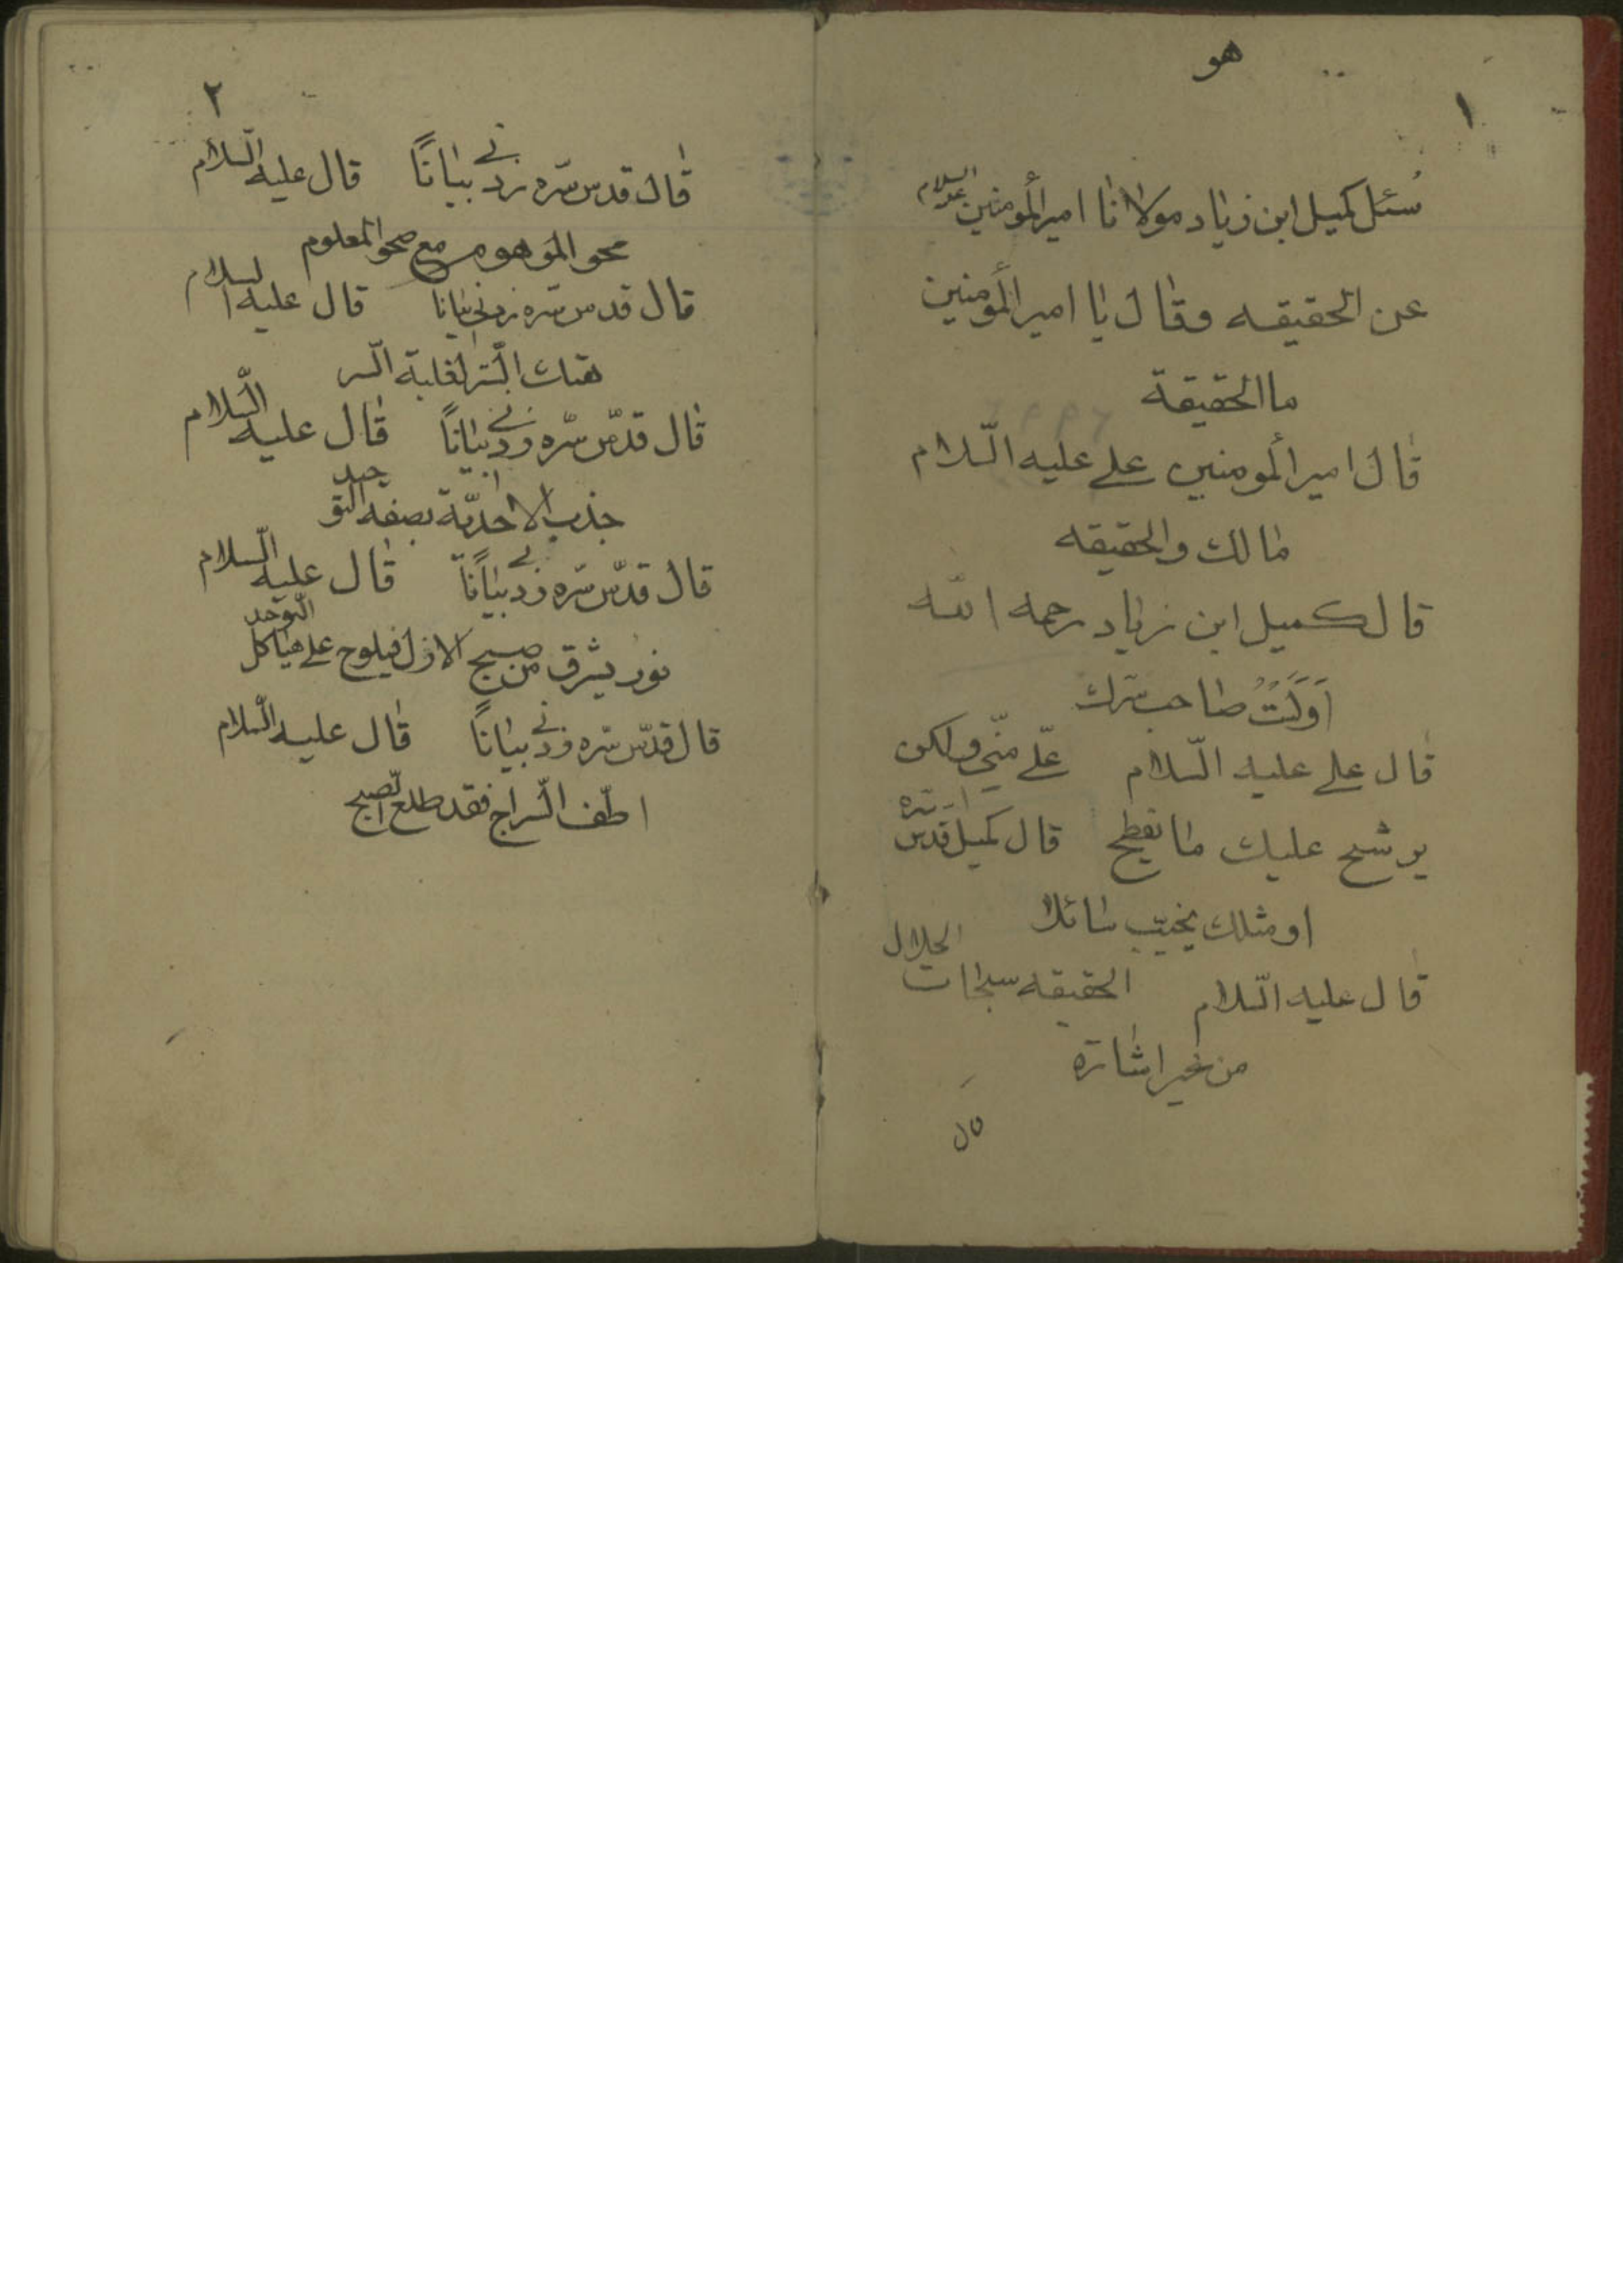 هو
١
سُئل كميل ابن زياد مولانا اميرالمؤمنين عليه السلام
عن الحقيقه وقال يا اميرالمؤمنين
ما الحقيقة
قال اميرالمؤمنين علي عليه السّلام
مالك والحقيقه
قال كميل ابن زياد رحمه الله
اَوَلَسْتُ صاحب سّرك
قال علي عليه السّلام علّي منّي ولكن
يرشح عليك ما يطفح قال كميل قدس سره
او مثلك يخيّب سائلا
قال عليه السّلام الحقيقه سبحات الجلال
من غير اشارة
٢
قال قدس سّره زدني بياناً قال عليه السّلام
محو الموهوم مع صحو المعلوم
قال قدس سّره زدني بيانا قال عليه السلام
هتك السّتر لغلبة السّر
قال قدّس سّره زدني بياناً قال عليه السّلام
جذب الاحديّة بصفه التوحيد
قال قدّس سّره زدني بياناً قال عليه السّلام
نور يشرق من صبح الازل فيلوح علي هياكل التوحيد
قال قدّس سّره زدني بياناً قال عليه السّلام
اطّف السّراج فقد طلع الصّبح